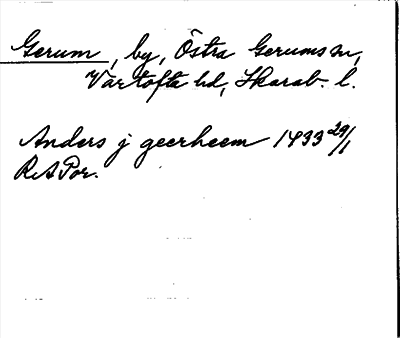 Gerum, by, Östra Gerums sn,
Vartofta hd, Skarab. l.
Anders j geerheem 1433 29/1
RAPor.